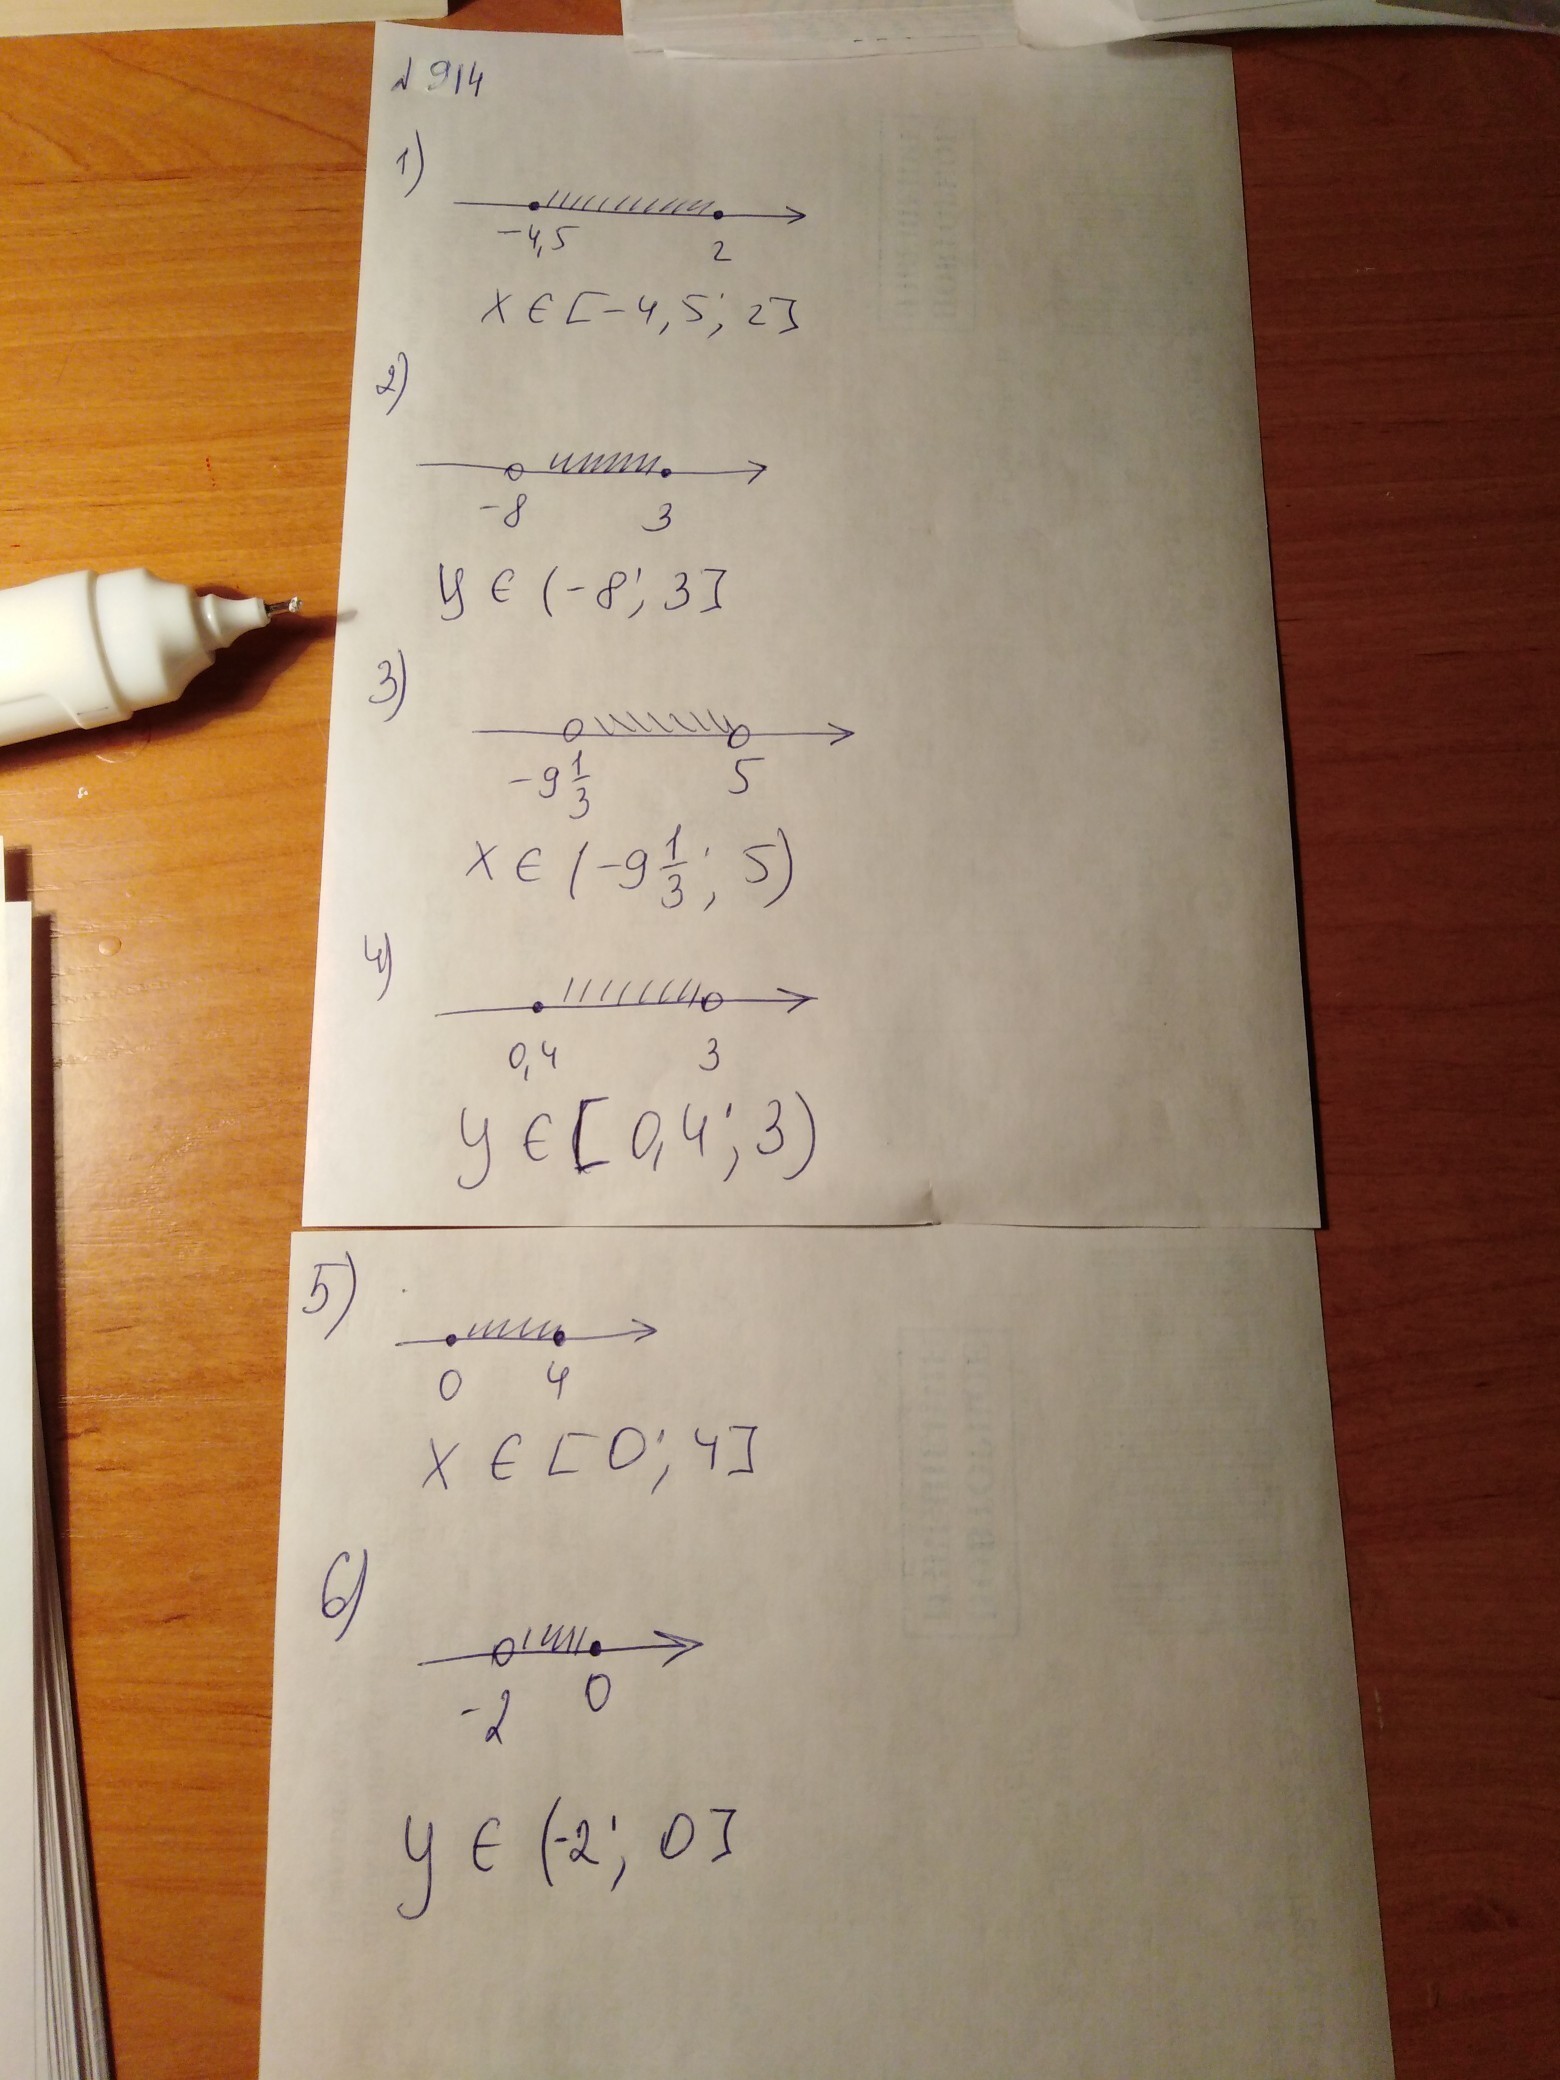 № 914
1)
-4,5 2
x ∈ [-4,5; 2]
2)
-8 3
y ∈ (-8; 3]
3)
-9 1/3 5
x ∈ (-9 1/3; 5)
4)
0,4 3
y ∈ [0,4; 3)
5)
0 4
x ∈ [0; 4]
6)
-2 0
y ∈ (-2; 0]